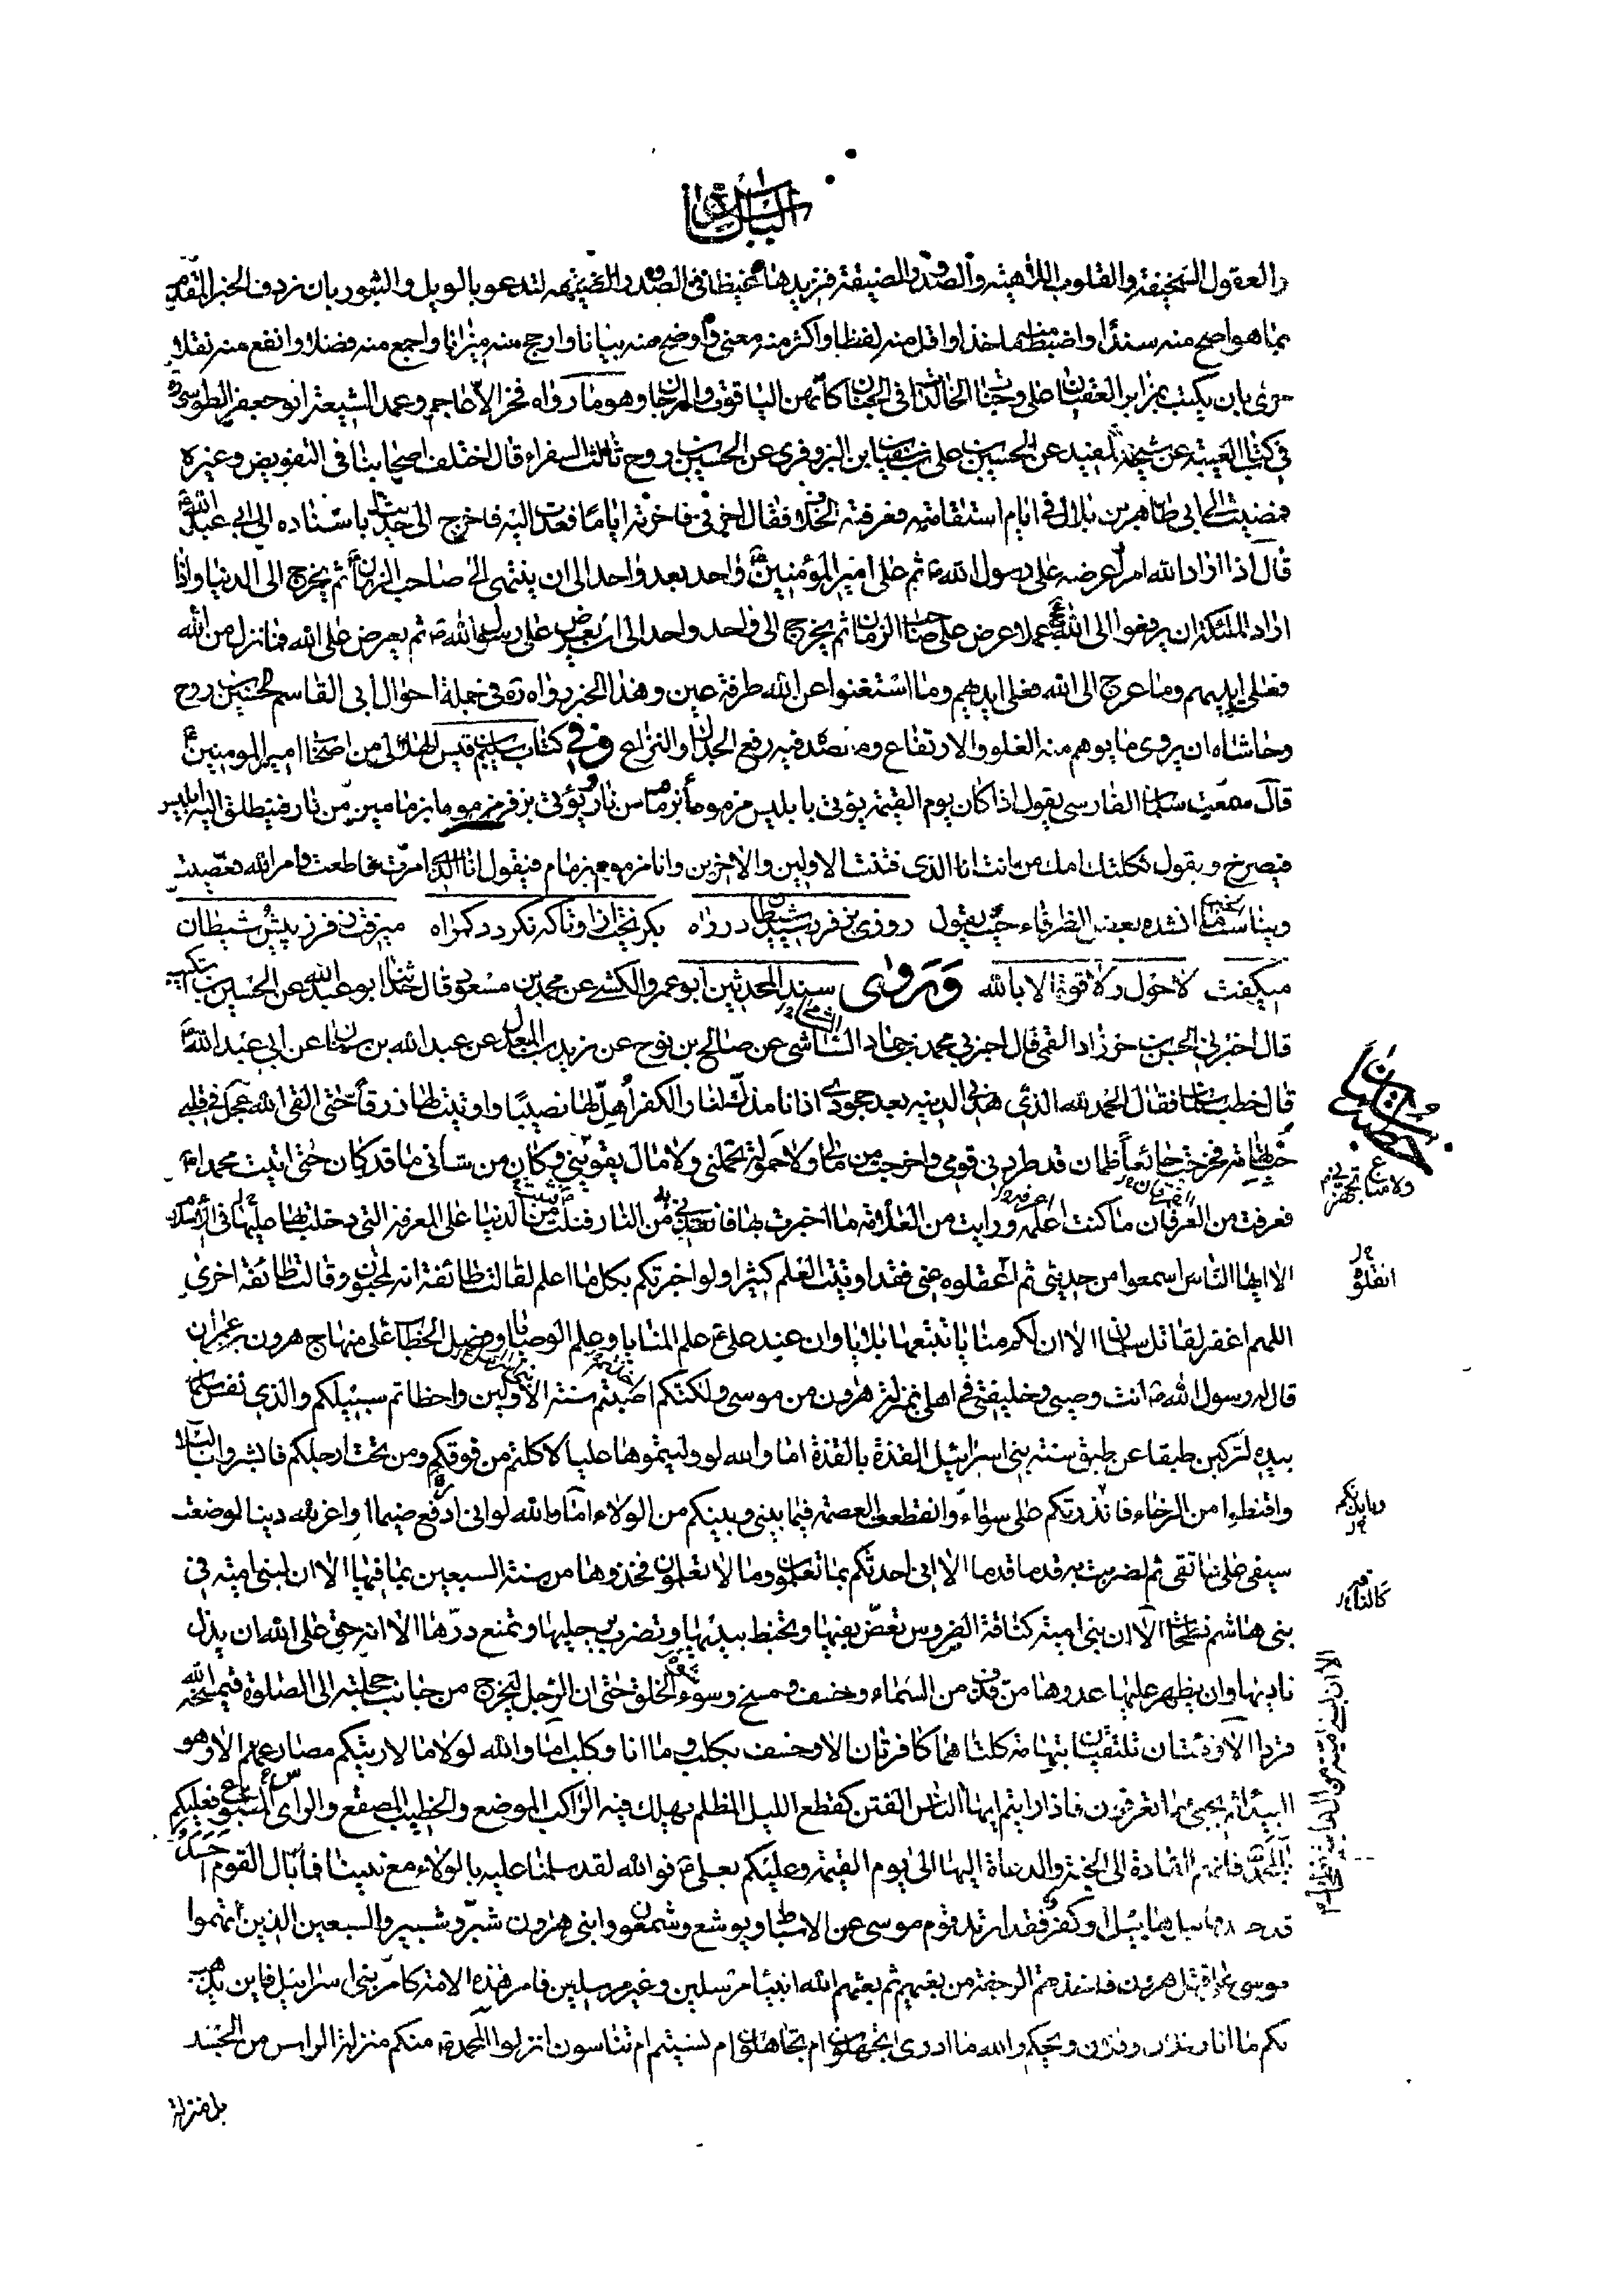 الباب السادس
والعقول السخيفة والقلوب اللاهية والصدور الضيقة فنزيدها غيظا في الصدور والضئية لتدعو بالويل والثبور بان نردف الخبر المتقدم
بما هو اصح منه سندا واضبط منه ماخذا واقل منه لفظا واكثر منه معنى واوضح منه بيانا وارجح منه ميزانا واجمع منه فضلا وانفع منه نقلا
حرى بان يكتب على وجنات في الجنان كانهن الياقوت والمرجان وهو ما رواه فخر الاعاجم وعمد الشيعة ابو جعفر الطوسي ره
في كتاب الغيبة عن شيخه المفيد عن الحسين بن علي بن سفيان البزوفري عن الحسين بن روح ثالث السفراء قال اختلف اصحابنا في التفويض وغيره
فمضيت الى ابي طاهر بن بلال في ايام استقامته فعرفته الخلاف فقال اخرني فاخرته اياما فعدت اليه فاخرج الى حديثا باسناده الى ابي عبد الله ع
قال اذا اراد الله امرا عرضه على رسول الله ص ثم على امير المؤمنين ع واحد بعد واحد الى ان ينتهى الى صاحب الزمان ع ثم يخرج الى الدنيا واذا
اراد الملئكة ان يرفعوا الى الله عز وجل عملا عرض على صاحب الزمان ثم يخرج الى واحد واحد الى ان يعرض على رسول الله ص ثم يعرض على الله فما نزل من الله
فعلى ايديهم وما عرج الى الله فعلى ايديهم وما استغنوا عن الله طرفة عين وهذا الخبر رواه ره في جملة احوال ابى القاسم الحسين بن روح
وحاشاه ان يروى ما يوهم منه الغلو والارتفاع وقصد فيه رفع الجدال والنزاع وفي كتاب سليم بن قيس الهلالى من اصحاب امير المومنين ع
قال سمعت سلمان الفارسى يقول اذا كان يوم القيمة يؤتى بابليس مزموما بزمام من نار ويؤتى بزفر مزموما بزمامين من نار فينطلق اليه ابليس
فيصرخ ويقول ثكلتك امك من انت انا الذى فتنت الاولين والاخرين وانا مزموم بزمام فيقول انا الذى امرت فاطعت وامر الله فعصيت
ويناسب هنا ما انشده بعض الظرفاء حيث يقول روزى بزفر شيطان در راه بگريخت از او تا كه نگردد گمراه ميرفت زفر ز پيش شيطان
ميگفت لا حول ولا قوة الا بالله وروى سيد المحدثين ابو عمرو الكشى عن محمد بن مسعود قال حدثنا ابو عبد الله عن الحسين بن اشكيب
قال اخبرنى الحسن بن خرزاد القمى قال اخبرنى محمد بن حماد الشاشى عن صالح بن نوح عن زيد بن المعدل عن عبد الله بن سنان عن ابي عبد الله ع
قال خطب سلمان فقال الحمد لله الذى هدانى لدينه بعد جحودى اذ انا مذك لنار الكفر اهل لها نصيبا واوتيت لها رزقا حتى القى الله عز وجل في قلبى
حب تهامة فخرجت جائعا ظمان قد طردنى قومى واخرجت من مالى ولا حمولة تحملنى ولا مال يقوينى وكان من شانى ما قد كان حتى اتيت محمدا ص
فعرفت من العرفان ما كنت اعلمه ورايت من العلامة ما اخبرت بها فانقذنى به من النار فثبت من الدنيا على المعرفة التى دخلت بها عليها في الاسلام
الا ايها الناس اسمعوا من حديثى ثم اعقلوه عنى فقد اوتيت العلم كثيرا ولو اخبرتكم بكل ما اعلم لقالت طائفة انه لمجنون وقالت طائفة اخرى
اللهم اغفر لقاتل سلمان الا ان لكم منايا تتبعها بلايا وان عند على ع علم المنايا وعلم الوصايا وفصل الخطاب على منهاج هرون بن عمران
قال له رسول الله ص انت وصيى وخليفتى في اهلى بمنزلة هارون من موسى ولكنكم اصبتم سنة الاولين واخطاتم سبيلكم والذى نفس سلمان
بيده لتركبن طبقا عن طبق سنة بنى اسرائيل القذة بالقذة اما والله لو وليتموها عليا لاكلتم من فوقكم ومن تحت ارجلكم فابشروا بالبلاء
واقنطوا من الرخاء فانذرتكم على سواء وانقطعت العصمة فيما بينى وبينكم من الولاء اما والله لو انى ادفع ضيما او اعز لله دينا لوضعت
سيفى على عاتقى ثم لضربت به قدما قدما الا انى احدثكم بما تعلمون وما لا تعلمون فخذوها من سنة السبعين بما فيها الا ان لبنى امية في
بنى هاشم نطحات الا ان بنى امية كالناقة الضروس تعض بفيها وتخبط بيديها وتضرب برجليها وتمنع درها الا انه حق على الله ان يذل
ناديها وان يظهر عليها عدوها من قذف من السماء وخسف ومسخ وسوء الخلق حتى ان الرجل ليخرج من جانب حجلته الى الصلوة فيمسخه الله
قردا الا وفئتان تلتقيان بتهامة كلتاهما كافرتان الا وخسف بكلب وما انا وكلب اما والله لولا ما لاريتكم مصارعهم الا وهو
البيداء ثم يجئ ما تعرفون فاذا رايتم ايها الناس الفتن كقطع الليل المظلم يهلك فيه الراكب الموضع والخطيب المصقع والراى المتبوع فعليكم
بآل محمد فانهم القادة الى الجنة والدعاة اليها الى يوم القيمة وعليكم بعلى ع فوالله لقد سلمنا عليه بالولاء مع نبينا فما بال القوم احسد
قد حسد قابيل هابيل او كفر فقد ارتد قوم موسى عن الاسباط ويوشع وشمعون وابنى هارون شبر وشبير والسبعين الذين اتهموا
موسى على قتل هرون فاخذتهم الرجفة من بغيهم ثم بعثهم الله انبياء مرسلين وغير مرسلين فامر هذه الامة كامر بنى اسرائيل فاين يذهب
بكم ما انا وفلان وفلان ويحكم والله ما ادرى اتجهلون ام تتجاهلون ام نسيتم ام تتناسون انزلوا آل محمد منكم منزلة الراس من الجسد
بل منزلة
خطبة سلمان
ولا متاع تجهيز
كالناقة